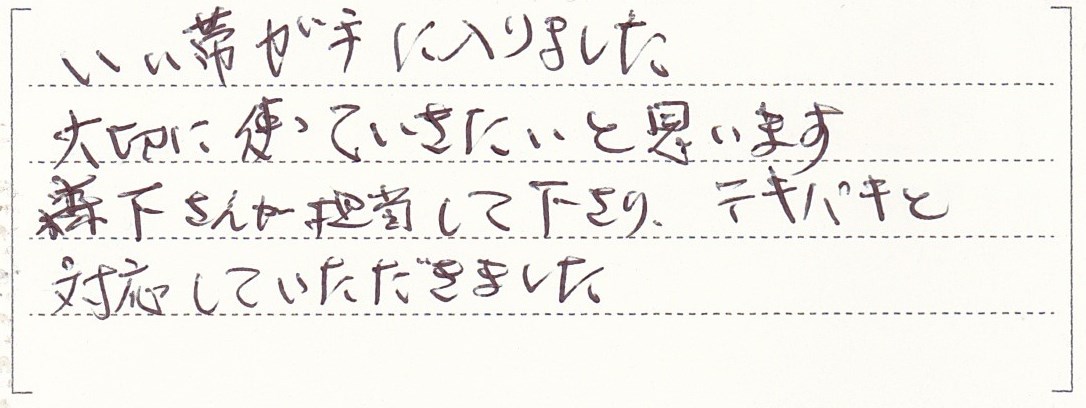 いい帯が手に入りました
大切に使っていきたいと思います
森下さんが担当して下さり、テキパキと
対応していただきました